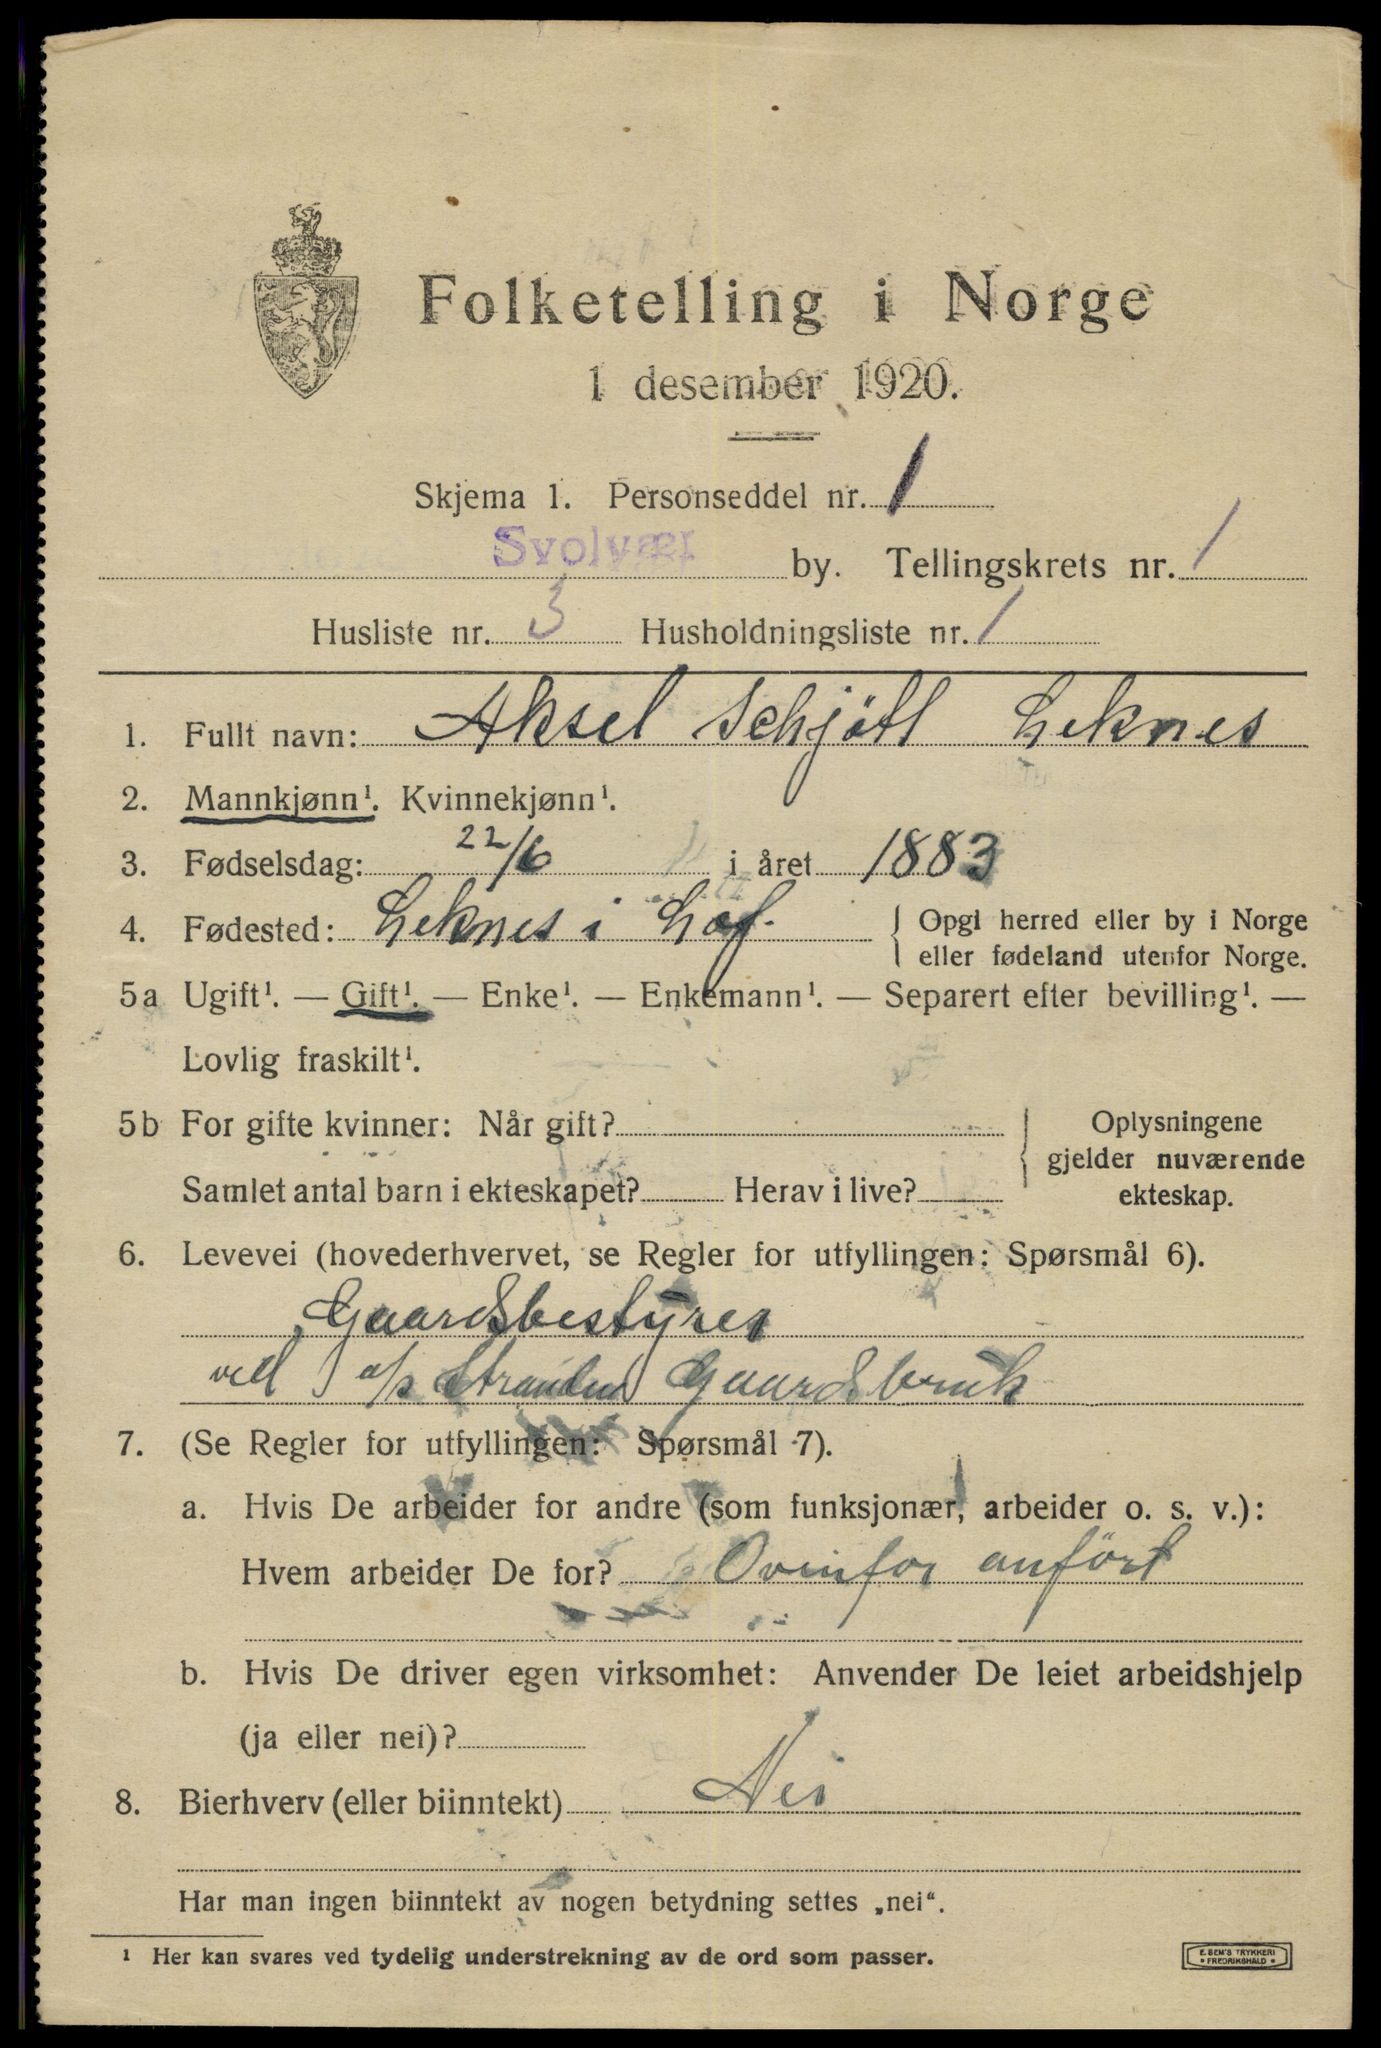 Folketelling i Norge
1 desember 1920.
Skjema 1. Personseddel nr. 1
Svolvær by. Tellingskrets nr. 1
Husliste nr. 3 Husholdningsliste nr. 1
1. Fullt navn: Aksel Schjött Leknes
2. Mannkjønn¹. Kvinnekjønn¹.
3. Fødselsdag: 22/6 i året 1883
4. Fødested: Leknes i Lof. { Opgi herred eller by i Norge
eller fødeland utenfor Norge.
5a Ugift¹. — Gift¹. — Enke¹. — Enkemann¹. — Separert efter bevilling¹. —
Lovlig fraskilt¹.
5b For gifte kvinner: Når gift? { Oplysningene
gjelder nuværende
ekteskap.
Samlet antal barn i ekteskapet? Herav i live?
6. Levevei (hovederhvervet, se Regler for utfyllingen: Spørsmål 6).
Gaardsbestyrer
ved a/s Stranden Gaardsbruk
7. (Se Regler for utfyllingen: Spørsmål 7).
a. Hvis De arbeider for andre (som funksjonær, arbeider o. s. v.):
Hvem arbeider De for? Ovenfor anfört
b. Hvis De driver egen virksomhet: Anvender De leiet arbeidshjelp
(ja eller nei)?
8. Bierhverv (eller biinntekt) Nei
Har man ingen biinntekt av nogen betydning settes „nei“.
¹ Her kan svares ved tydelig understrekning av de ord som passer.
E. SEM'S TRYKKERI
• FREDRIKSHALD •